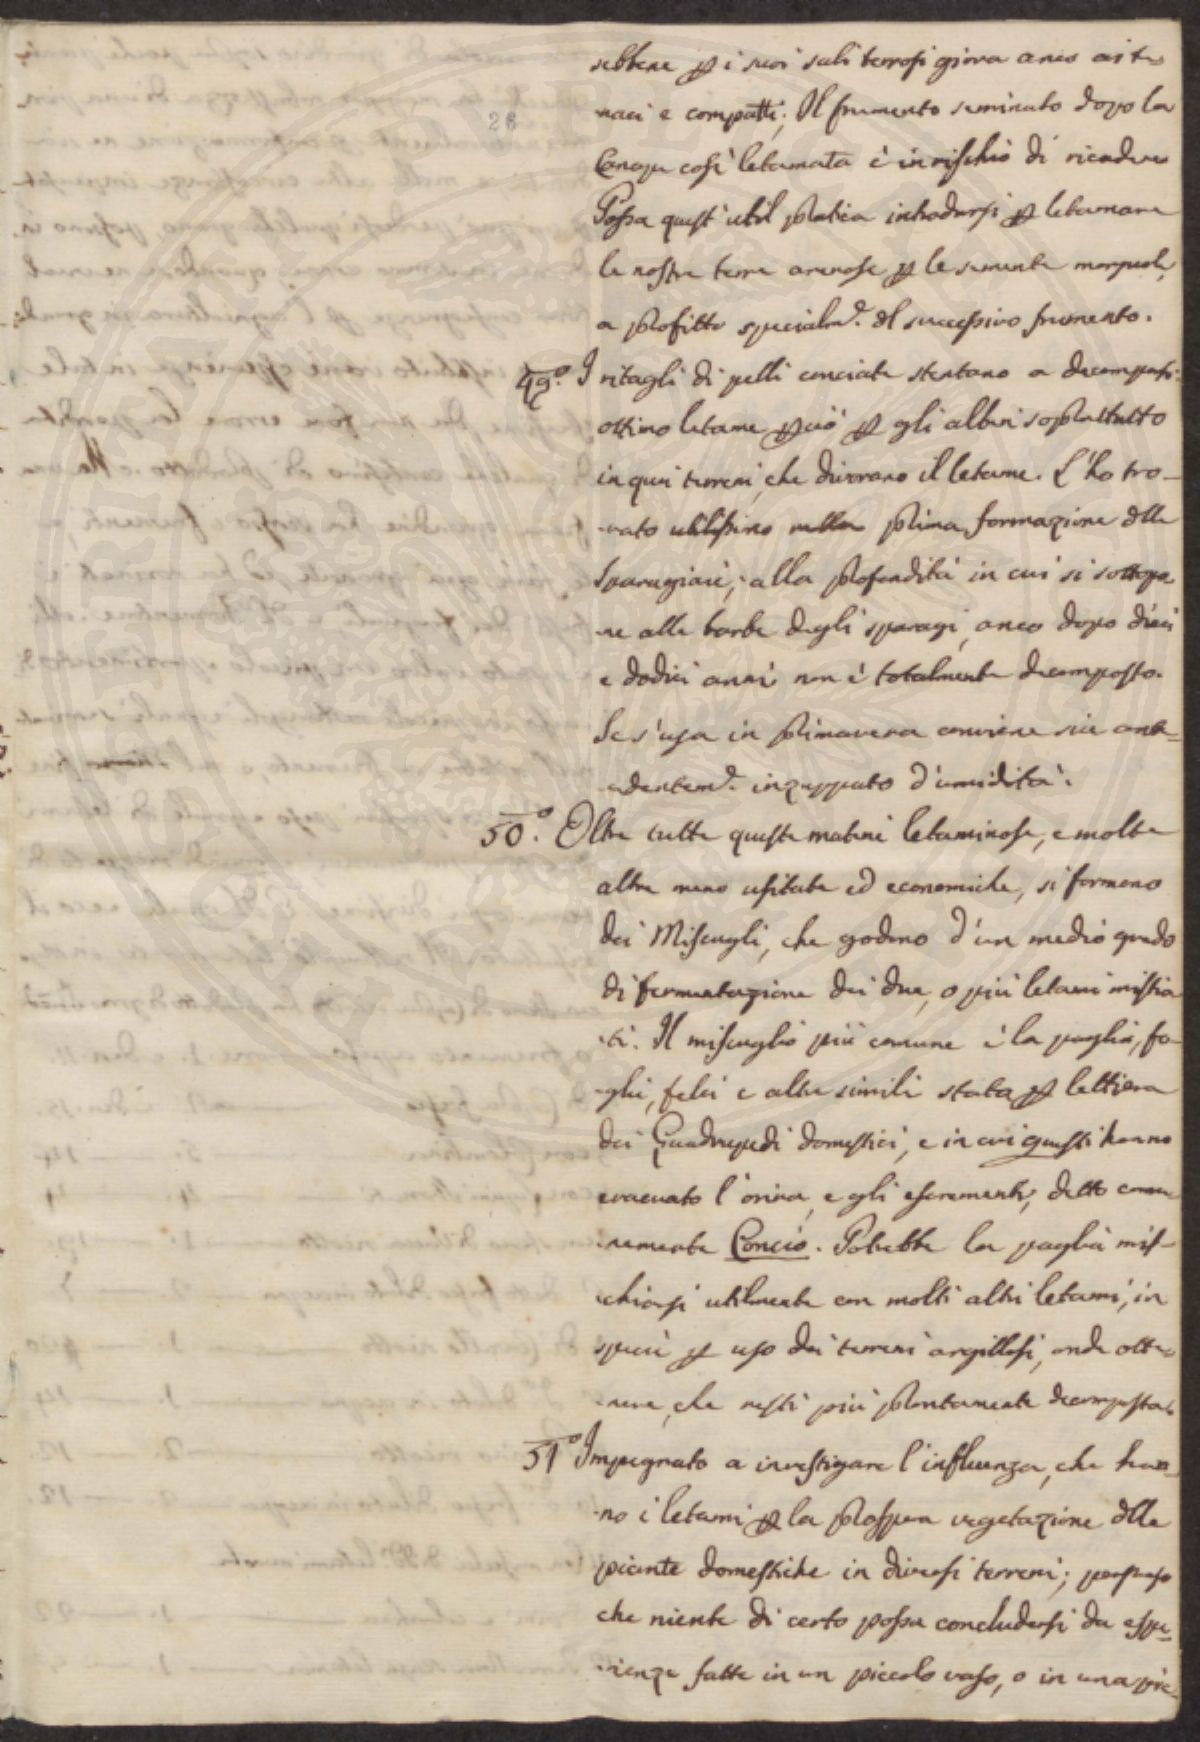 28
sebbene p i suoi sali terrosi giova anco ai te-
naci e compatti; Il frumento seminato dopo la
Canapa così letamata è in rischio di ricadere
Possa quest'util pratica introdursi p letamare
le nostre terre arenose p le semente
a profitto specialm.e del successivo frumento.
49.° I ritagli di pelli conciate stentano a decomporsi:
ottimo letame perciò p gli alberi soprattutto
in quei terreni, che divorano il letame. L'ho tro-
-vato utilissimo nella prima formazione delle
Sparagiaie; alla profondità in cui si sottopo
ne alle barbe degli sparagi, anco dopo dieci
e dodici anni non è totalmente decomposto.
Se s'usa in primavera conviene sia ante-
cedentem.e inzuppato d'umidità.
50.° Oltre tutte queste materie letaminose, e molte
altre meno usitate ed economiche, si formano
dei Miscugli, che godono d'un medio grado
di fermentazione dei due, o più letami mistia
ti. Il miscuglio più comune è la paglia, fo-
-glie, felci e altre simili state p lettiera
dei Quadrupedi domestici, e in cui questi hanno
evacuato l'orina, e gli escrementi, detto comu-
nemente Concio. Potrebbe la paglia mis-
chiarsi utilmente con molti altri letami, in
specie p uso dei terreni argillosi, onde otte-
nere, che resti più prontamente decomposta.
51° Impegnato a investigare l'influenza, che han-
-no i letami p la prospera vegetazione delle
piante domestiche in diversi terreni; persuaso
che niente di certo possa concludersi da espe-
-rienze fatte in un piccolo vaso, o in una pic-